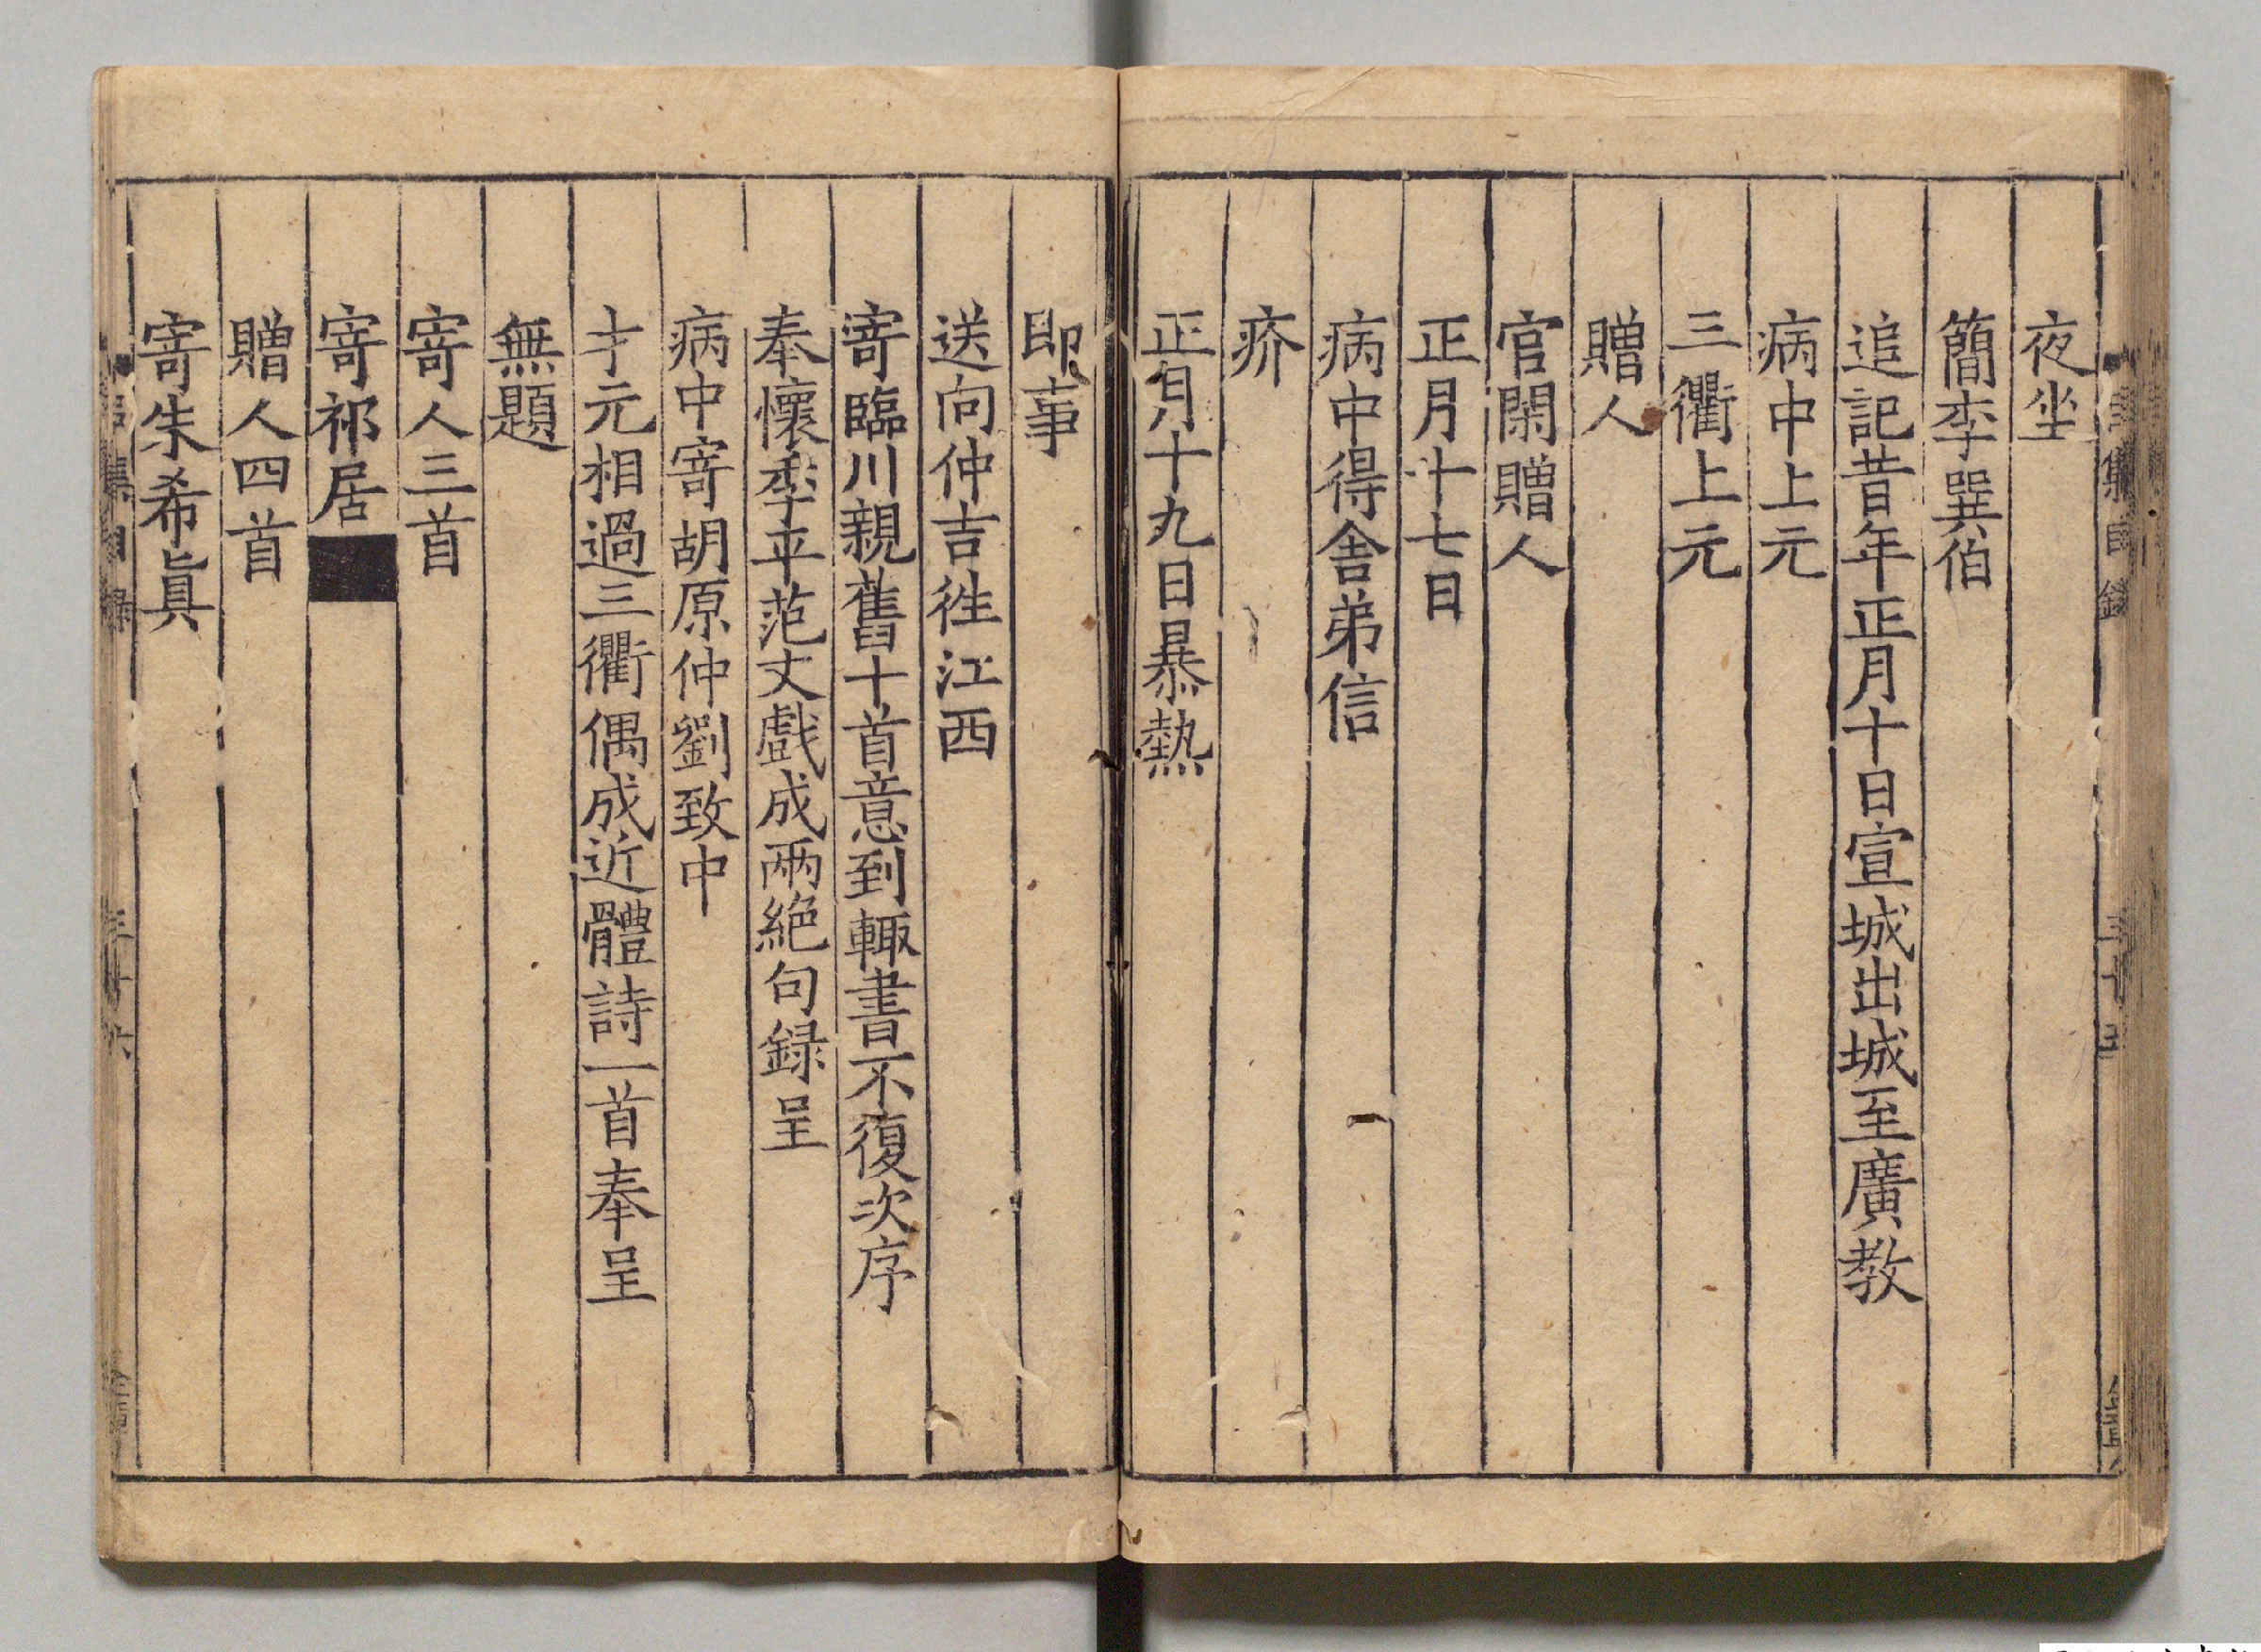 夜坐
簡李巽伯
追記昔年正月十日宣城出城至廣教
病中上元
三衢上元
贈人
官閑贈人
正月十七日
病中得舍弟信
疥
正月十九日暴熱
即事
送向仲吉徃江西
寄臨川親舊十首意到輙書不復次序
奉懷季平范丈戲成兩絶句録呈
病中寄胡原仲劉致中
才元相過三衢偶成近體詩一首奉呈
無題
寄人三首
寄祁居
贈人四首
寄朱希眞